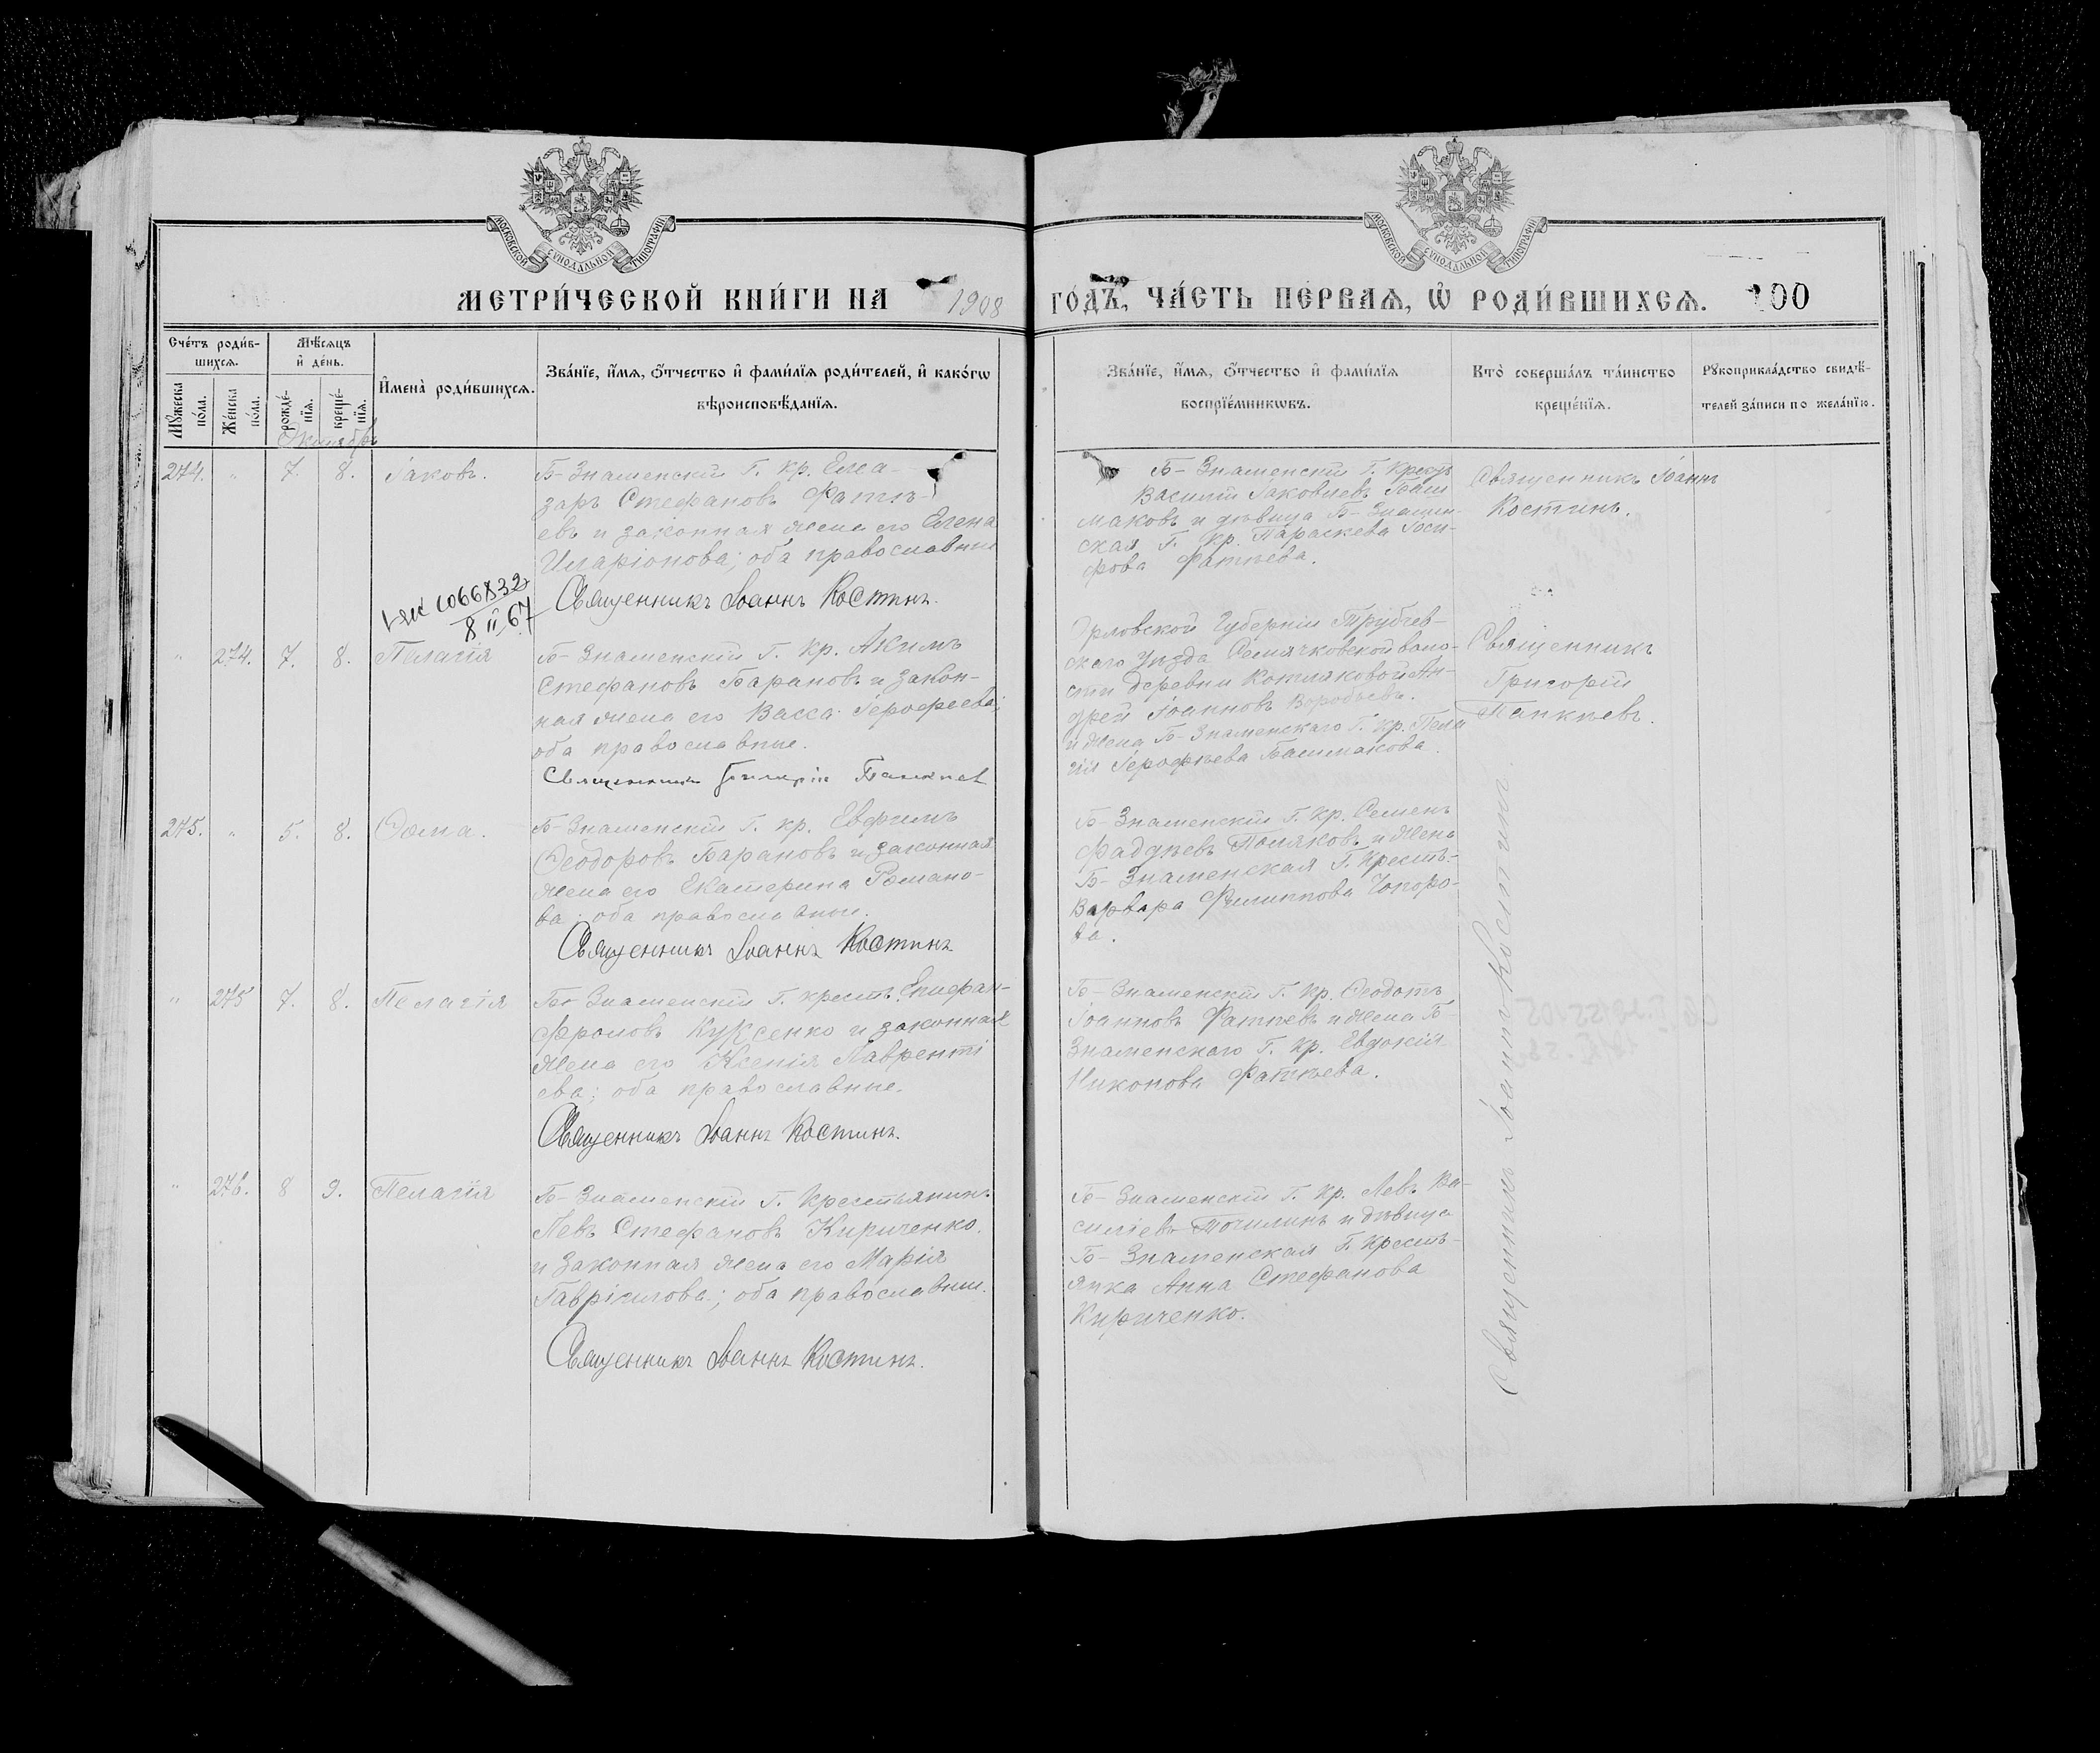 МОСКОВСКОЙ СѴНОДАЛЬНОЙ ТИПОГРАФІИ
МОСКОВСКОЙ СѴНОДАЛЬНОЙ ТИПОГРАФІИ
МЕТРИ́ЧЕСКОЙ КНИ́ГИ НА 1908 ГО́ДЪ, ЧА́СТЬ ПЕ́РВАЯ, Ѡ҆ РОДИ́ВШИХСЯ. 100
Сче́тъ роди́в-
шихся.
Мѣ́сяцъ
и҆ де́нь.
Мꙋ́жеска
по́ла.
Же́нска
по́ла.
рожде́-
нїя.
креще́-
нїя.
И҆мена̀ роди́вшихся.
Зва́нїе, и҆́мя, ѻ҆́тчество и҆ фами́лїя роди́телей, и҆ како́гѡ
вѣроисповѣ́данїя.
Зва́нїе, и҆́мя, ѻ҆́тчество и҆ фами́лїя
воспрїе́мникѡвъ.
Кто̀ соверша́лъ та́инство
креще́нїя.
Рꙋкоприкла́дство свидѣ́-
телей за́писи по жела́нїю.
Октябрь
274. " 7. 8. Іаковъ.
Б-Знаменскій Г. кр. Елеа-
заръ Стефановъ Фатѣ-
евъ и законная жена его Елена
Иларіонова; оба православные
Священникъ Іоаннъ Костинъ.
Б-Знаменскій Г. крест.
Василій Іаковлевъ Баш
маковъ и дѣвица Б-Знамен-
ская Г. кр. Параскева Іоси-
фова Фатѣева.
Священникъ Іоаннъ
Костинъ.
1066832
8 II 67
" 274. 7. 8. Пелагія
Б-Знаменскій Г. кр. Акимъ
Стефановъ Барановъ и закон-
ная жена его Васса Іерофеева;
оба православные.
Священникъ Григорій Панкѣев
Орловской Губерніи Трубчев-
скаго уѣзда Семячковской воло-
сти деревни Котляковой Ан-
дрей Іоанновъ Воробьевъ
и жена Б-Знаменскаго Г. кр. Пела
гія Іерофѣева Башмакова.
Священникъ
Григорій
Панкѣевъ.
275. " 5. 8. Ѳома.
Б-Знаменскій Г. кр. Евфимъ
Ѳеодоровъ Барановъ и законная
жена его Екатерина Романо-
ва; оба православные.
Священникъ Іоаннъ Костинъ
Б-Знаменскій Г. кр. Семенъ
Фадѣевъ Поляковъ и жена
Б-Знаменская Г. крестъ-
Варвара Филиппова Чопоро-
ва.
" 275 7. 8. Пелагія
Б-Знаменскій Г. крест. Епифан-
Фроловъ Куксенко и законная
жена его Ксенія Лаврентi
ева; оба православные.
Священникъ Іоаннъ Костинъ.
Б-Знаменскій Г. кр. Ѳеодотъ
Іоанновъ Фатѣевъ и жена Б-
Знаменскаго Г. кр. Евдокія
Никонова Фатѣева.
" 276. 8 9. Пелагія
Б-Знаменскій Г. крестьянинъ
Левъ Стефановъ Кириченко
и законная жена его Марія
Гавріилова; оба православные.
Священникъ Іоаннъ Костинъ.
Б-Знаменскій Г. кр. Левъ Ва-
силіевъ Точилинъ и дѣвица
Б-Знаменская Г. кресть-
янка Анна Стефанова
Кириченко.
Священникъ Іоаннъ Костинъ.